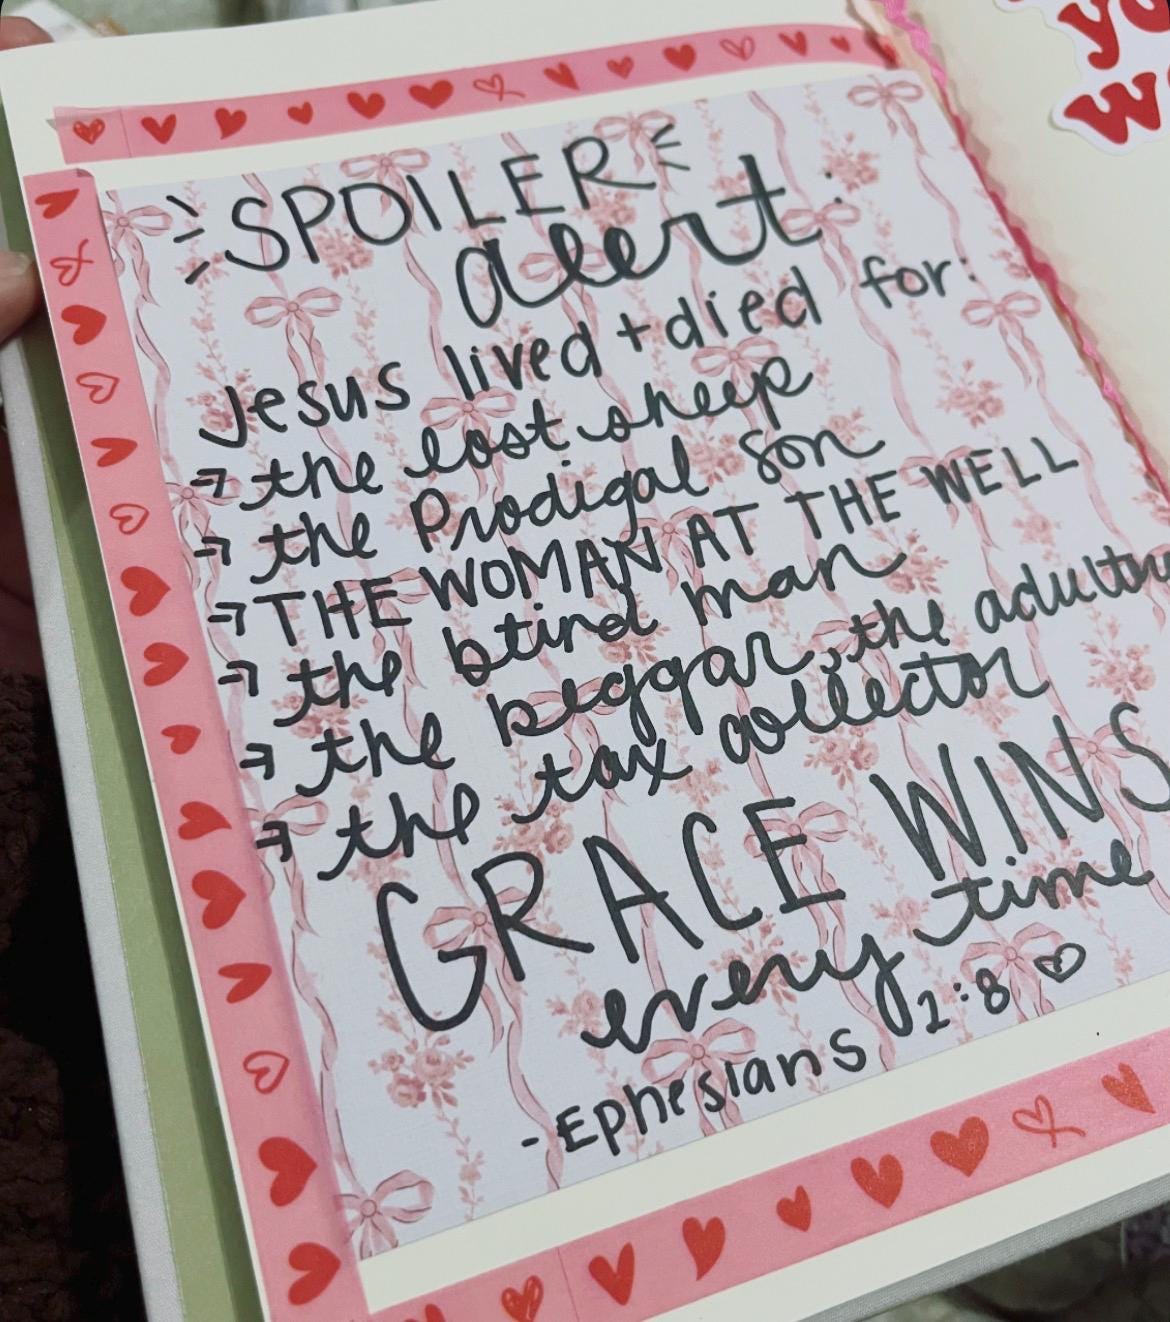 SPOILER
alert:
Jesus lived + died for:
→ the lost sheep
→ the Prodigal son
→ THE WOMAN AT THE WELL
→ the blind man
→ the beggar, the
→ the tax collector
GRACE WINS
every time
- Ephesians 2:8 ♡